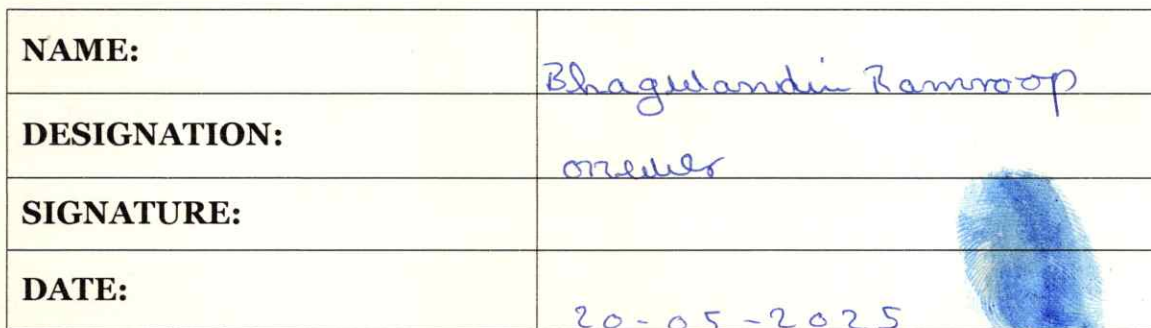 NAME: Bhagwandin Ramroop
DESIGNATION:
SIGNATURE:
DATE: 20-05-2025